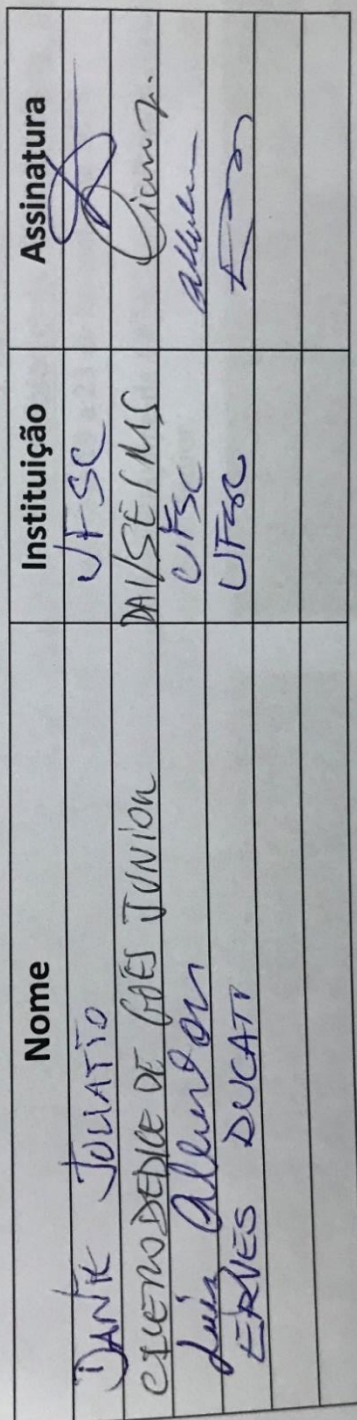 Nome Instituição Assinatura
DANTE JULIATTO UFSC
CICERO DEDICE DE GÓES JUNIOR DAI/SE/MS
Luis Alberton UFSC
ERVES DUCATI UFSC